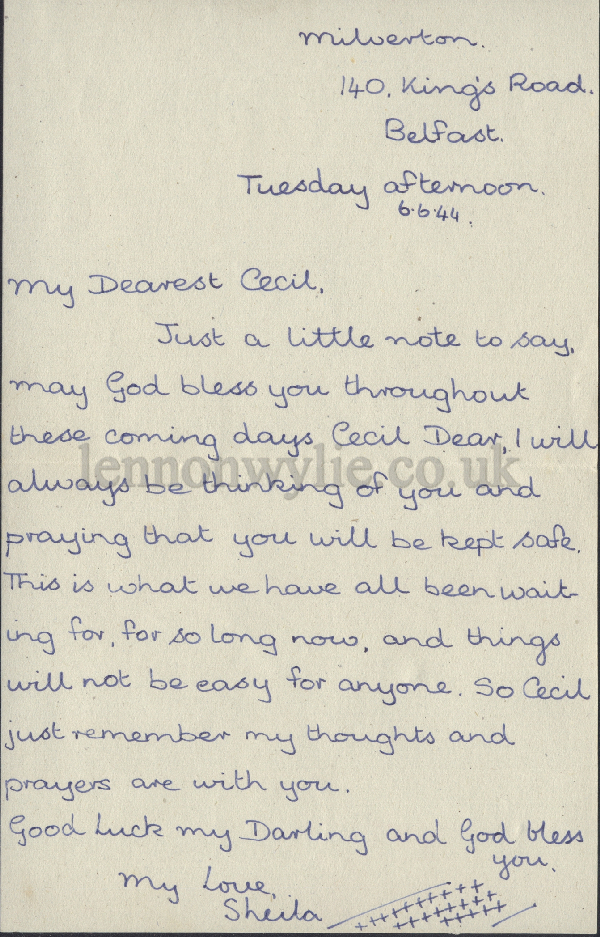 Milverton.
140, King's Road.
Belfast.
Tuesday afternoon.
6.6.44.
My Dearest Cecil,
Just a little note to say,
may God bless you throughout
these coming days, Cecil Dear, I will
lennonwylie.co.uk
always be thinking of you and
praying that you will be kept safe.
This is what we have all been wait-
ing for, for so long now, and things
will not be easy for anyone. So Cecil
just remember my thoughts and
prayers are with you.
Good Luck my Darling and God bless
you.
My Love,
Sheila
+++++++
++++++++
++++++